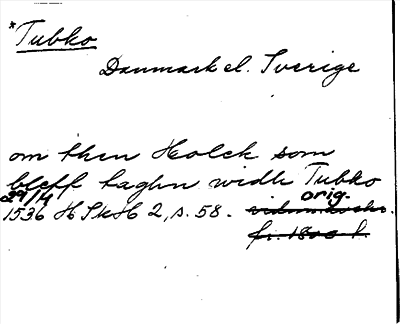 *Tubko
Danmark el. Sverige
om then Holck som
bleff taghn widh Tubko
29/4 orig.
1536 HSkH 2, s. 58. vidimusschr.
fr. 1800 t.